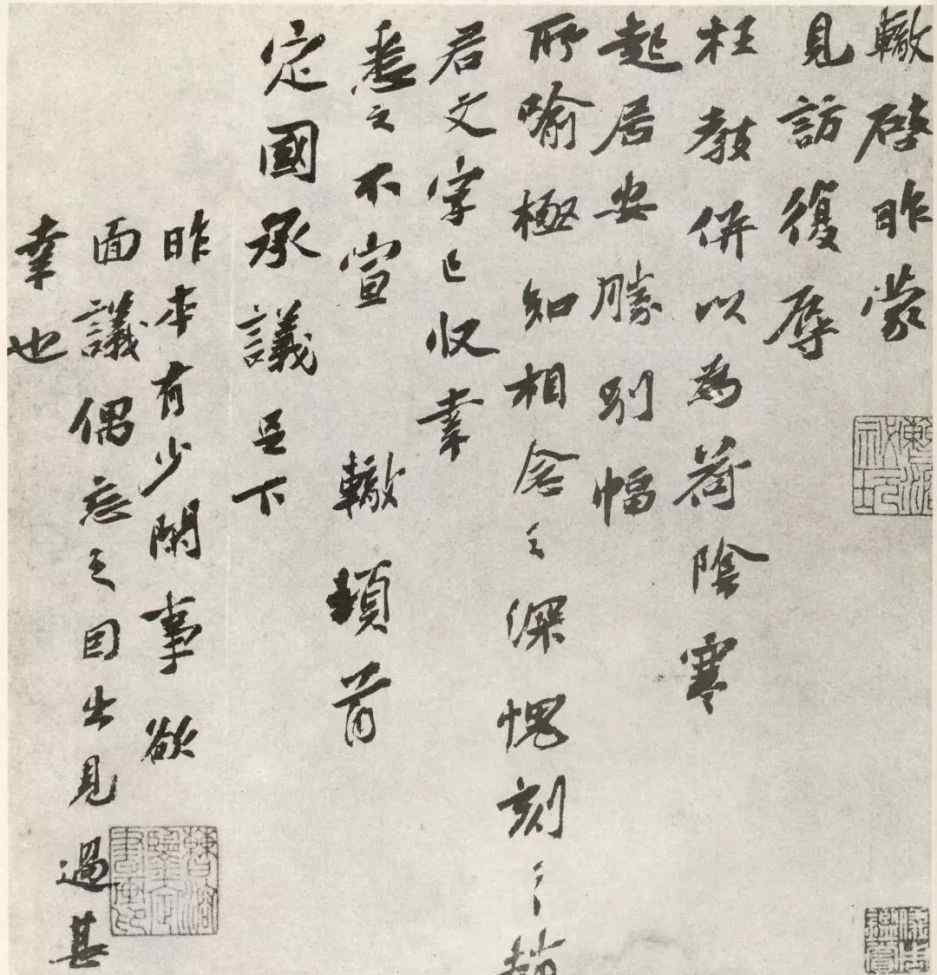 轍啓昨蒙
見訪復辱
枉教併以為荷陰寒
起居安勝別幅
所喻極知相念之深愧刻〻趙
君文字已収幸
悉之不宣 轍頓首
定國承議呈下
昨本有少閑事欲
面議偶忘之因出見過甚
幸也